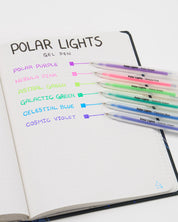 POLAR LIGHTS
GEL PEN
POLAR PURPLE
NEBULA PINK
ASTRAL GREEN
GALACTIC GREEN
CELESTIAL BLUE
COSMIC VIOLET